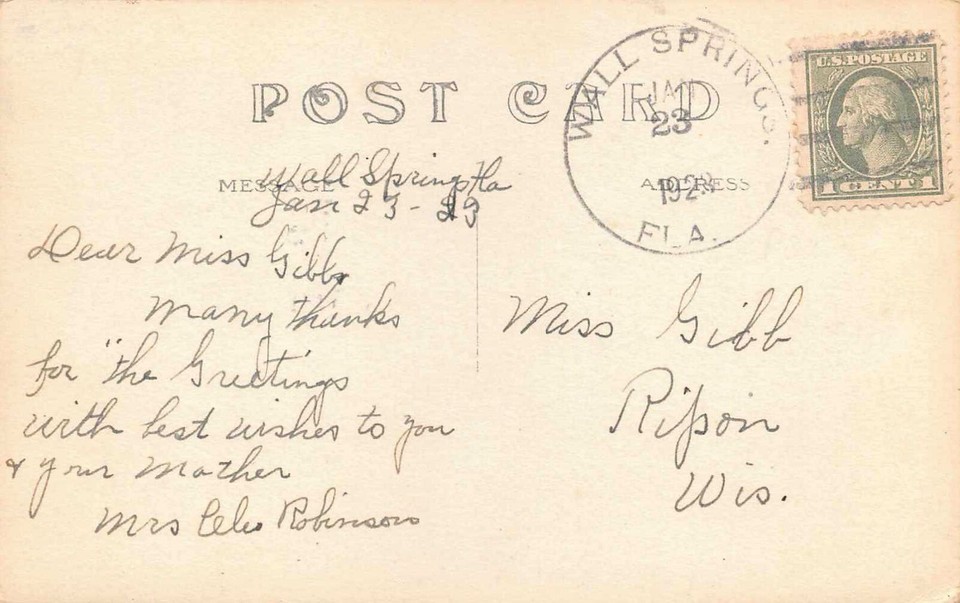 POST CARD
WALL SPRINGS.
JAN
23
1923
FLA.
U.S. POSTAGE
1 CENT 1
MESSAGE
ADDRESS
Wall Springs Fla
Jan 23 - 23
Dear Miss Gibb
Many thanks
for "the Greetings
with best wishes to you
& your Mother
Mrs Robinson
Miss Gibb
Ripon
Wis.